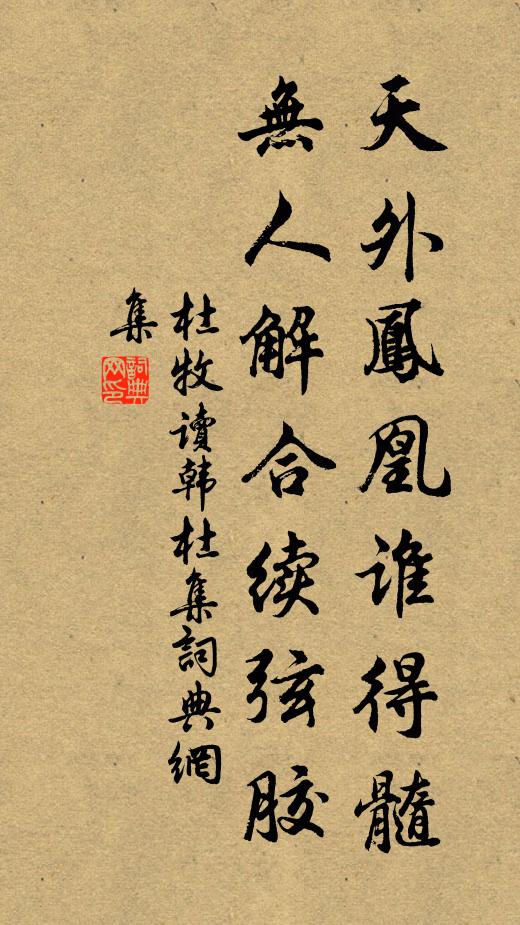 天外鳳凰谁得髓
無人解合续弦胶
杜牧读韩杜集詞典網
集
詞典
网印